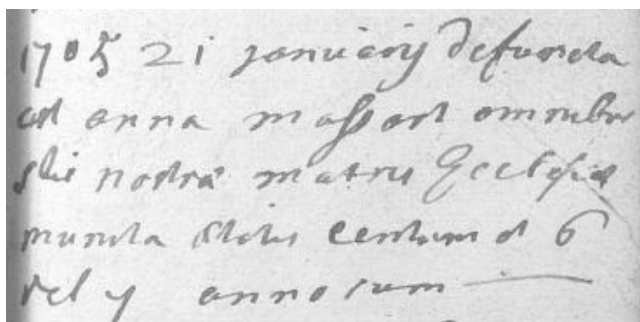 1705 21 januarij defuncta
est anna massart omnibus
nostrae matris Ecclesiae
munita etatis centum et 6
vel 7 annorum